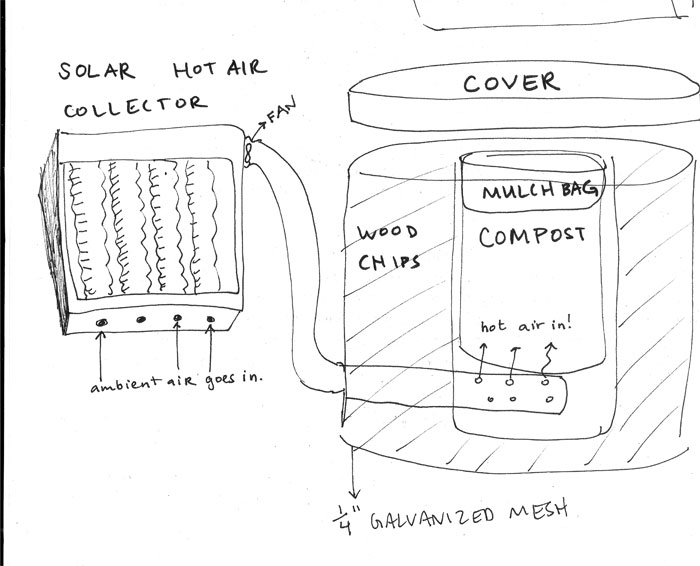 SOLAR HOT AIR
COLLECTOR
FAN
ambient air goes in.
COVER
MULCH BAG
WOOD
CHIPS
COMPOST
hot air in!
1/4" GALVANIZED MESH